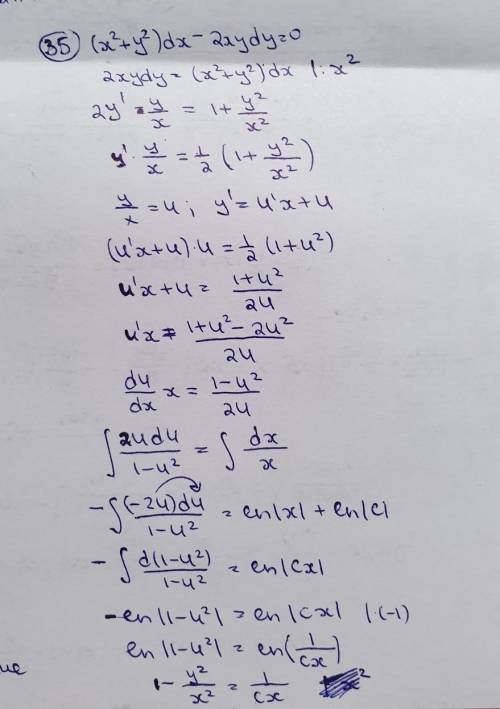 35) (x²+y²)dx - 2xydy=0
2xydy = (x²+y²)dx |: x²
2y' · y/x = 1 + y²/x²
y' · y/x = 1/2 (1 + y²/x²)
y/x = u; y' = u'x + u
(u'x+u)·u = 1/2 (1+u²)
u'x+u = (1+u²)/2u
u'x = (1+u²-2u²)/2u
du/dx x = (1-u²)/2u
∫ 2udu/(1-u²) = ∫ dx/x
-∫ (-2u)du/(1-u²) = ln|x| + ln|c|
-∫ d(1-u²)/(1-u²) = ln|cx|
-ln|1-u²| = ln|cx| |·(-1)
ln|1-u²| = ln(1/cx)
1 - y²/x² = 1/cx